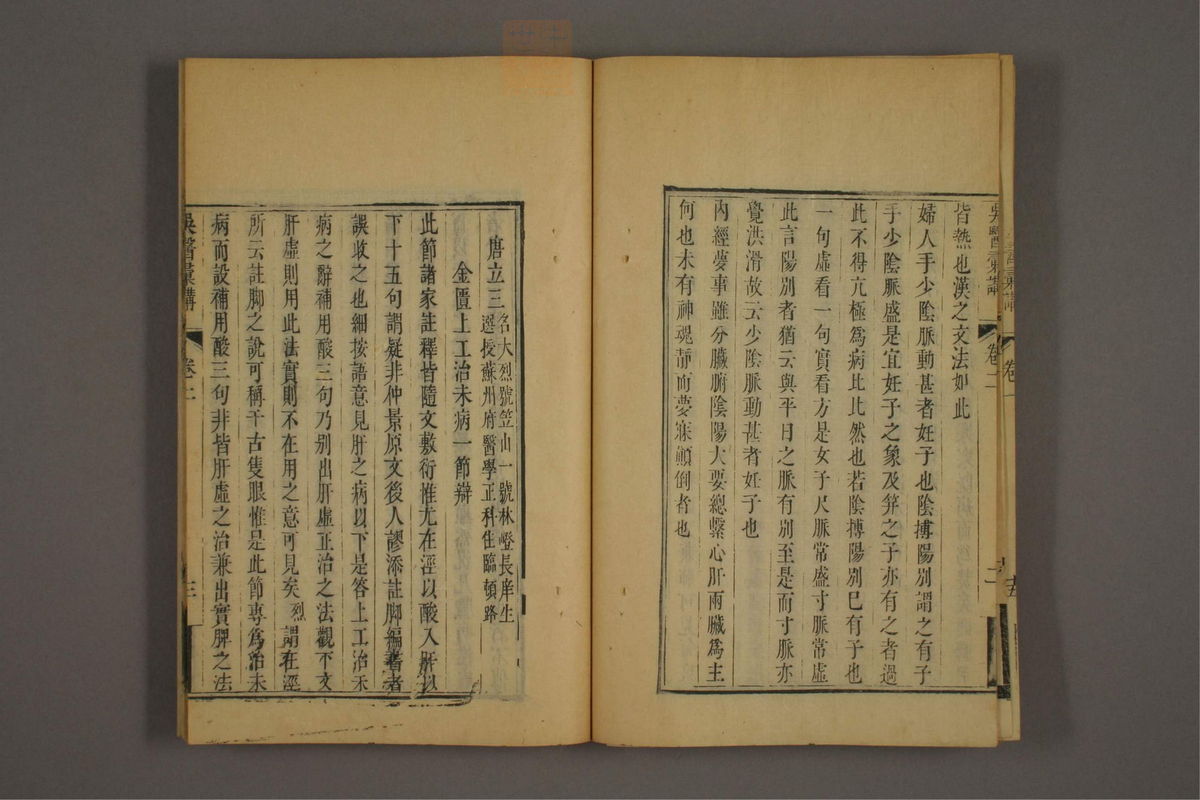 吳醫彙講
卷二
二
皆熱也漢之文法如此
婦人手少陰脈動甚者妊子也陰搏陽別謂之有子
手少陰脈盛是宜妊子之象及筓之子亦有之者過
此不得亢極爲病比比然也若陰搏陽別已有子也
一句虛看一句實看方是女子尺脈常盛寸脈常虛
此言陽別者猶云與平日之脈有別至是而寸脈亦
覺洪滑故云少陰脈動甚者妊子也
內經夢事雖分臟腑陰陽大要總繫心肝兩臟爲主
何也未有神魂靜而夢寐顚倒者也
唐立三名大烈號笠山一號林嶝長庠生
選授蘇州府醫學正科住臨頓路
金匱上工治未病一節辯
此節諸家註釋皆隨文敷衍惟尤在涇以酸入肝以
下十五句謂疑非仲景原文後人謬添註脚編書者
誤收之也細按語意見肝之病以下是答上工治未
病之辭補用酸三句乃別出肝虛正治之法觀下文
肝虛則用此法實則不在用之意可見矣烈謂在涇
所云註脚之說可稱千古隻眼惟是此節專爲治未
病而設補用酸三句非皆肝虛之治兼出實脾之法
吳醫彙講
卷二
三